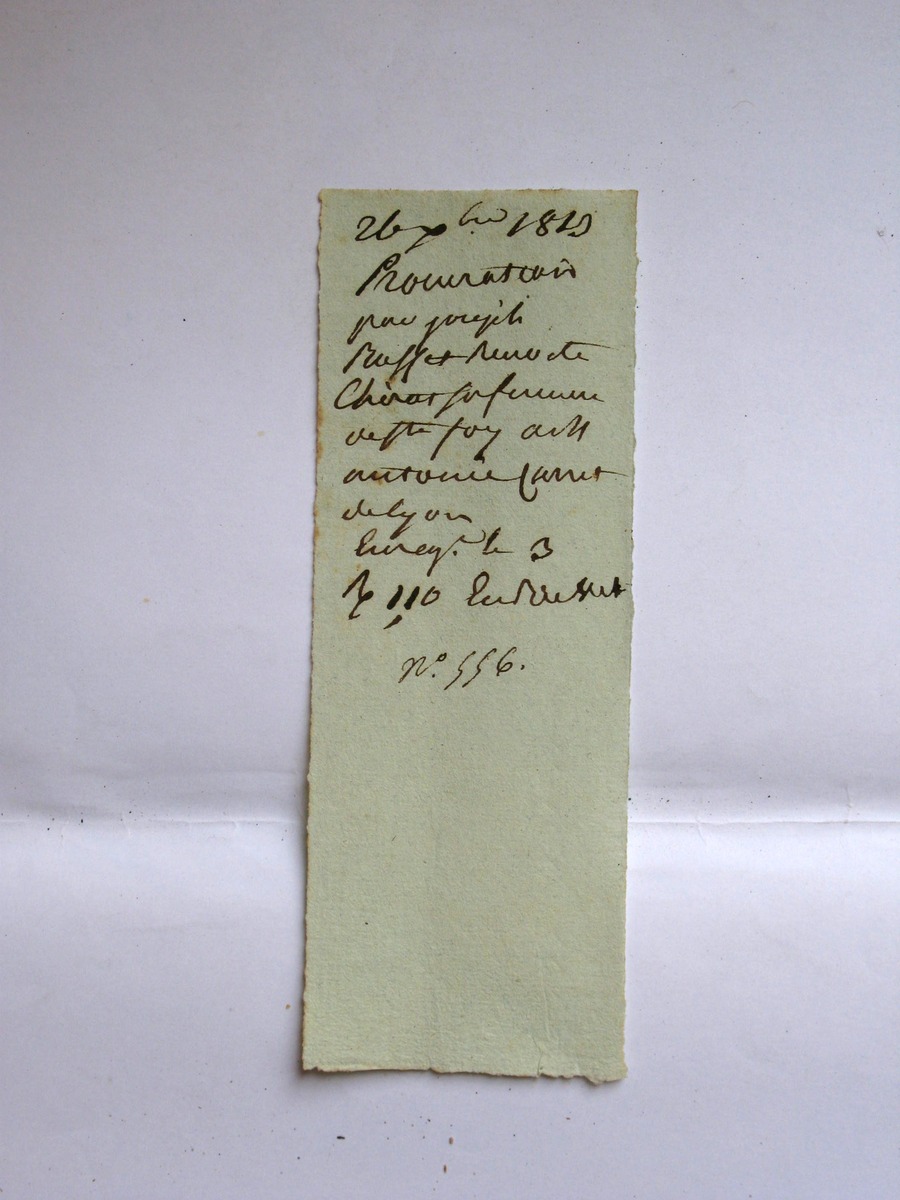 26 xbre 1819
Procuration
par joseph
Rosset
Chirat sa femme
de ste foy a Mr
antoine Carret
de lyon
Enregt. le 3
R 110
n°. 556.